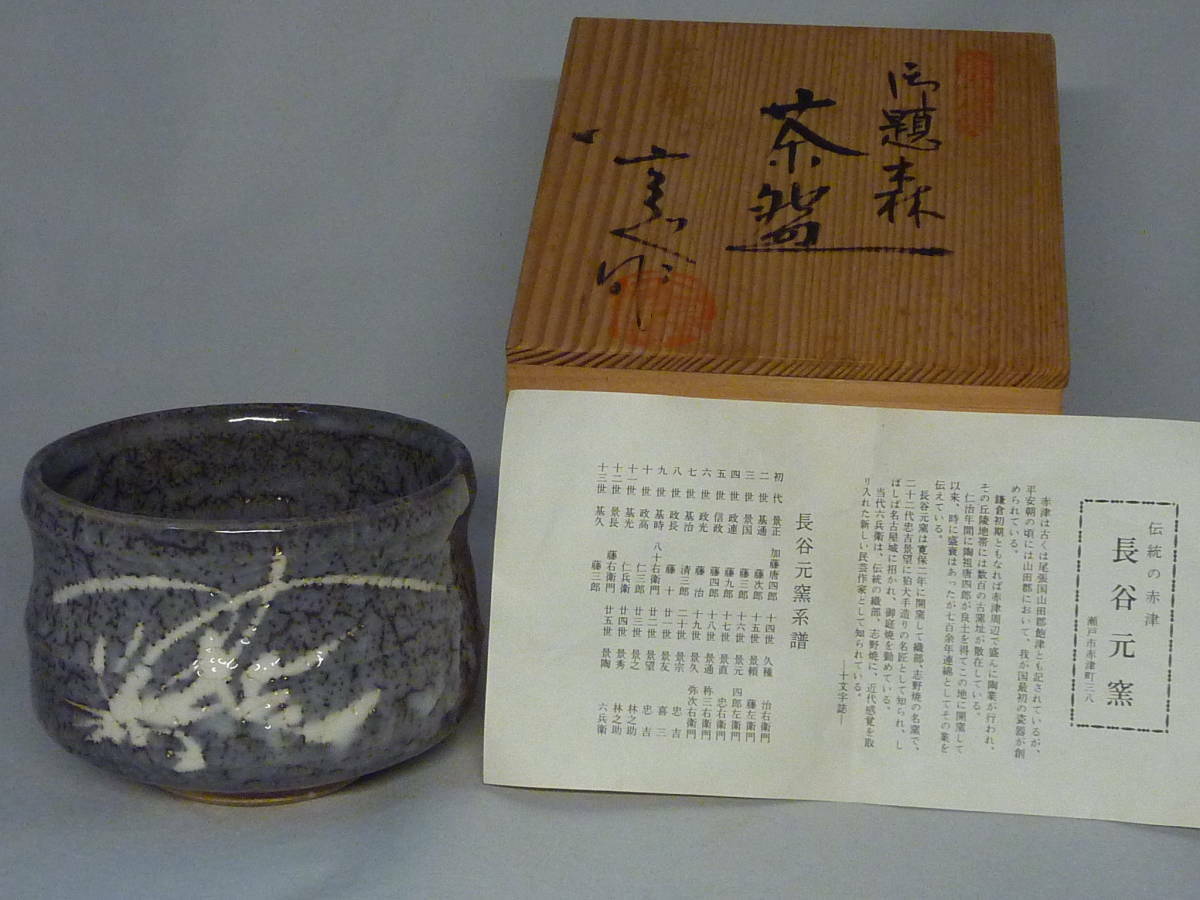 御題 森
茶盌
作
伝統の赤津
長谷元窯
瀬戸市赤津町三八
赤津は古くは尾張国山田郡飽津とも記されているが、
平安朝の頃には山田郡において、我が国最初の瓷器が創
められている。
鎌倉初期ともなれば赤津周辺で盛んに陶業が行われ、
その丘陵地帯には数百の古窯址が散在している。
仁治年間に陶祖唐四郎が良土を得てこの地に開窯して
以来、時に盛衰はあったが七百余年連綿としてその業を
伝えている。
長谷元窯は寛保二年に開窯して織部、志野焼の名窯で、
二十二代忠吉景望に狛犬手造りの名匠として知られ、し
ばしば名古屋城に招かれ、御庭焼を勤めている。
当代六兵衛は、伝統の織部、志野焼に、近代感覚を取
り入れた新しい民芸作家として知られている。
―十文字誌―
長谷元窯系譜
初代 景正 加藤唐四郎
二世 基通 藤次郎
三世 景国 藤三郎
四世 政連 藤九郎
五世 信政 藤四郎
六世 政光 藤治
七世 基治 清三郎
八世 政長 藤十
九世 基時 八十右衛門
十世 政高 仁三郎
十一世 基光 仁兵衛
十二世 景長 藤右衛門
十三世 基久 藤三郎
十四世 久種 治右衛門
十五世 景頼 藤左衛門
十六世 景元 四郎左衛門
十七世 景直 忠右衛門
十八世 景通 杵三右衛門
十九世 景久 弥次右衛門
二十世 景宗 忠吉
廿一世 景友 喜三
廿二世 景望 忠吉
廿三世 景之 林之助
廿四世 景秀 林之助
廿五世 景陶 六兵衛